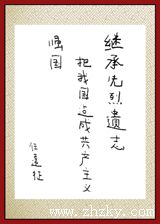 继承先烈遗志
把我国造成共产主义
强国
任远征
www.zhzky.com